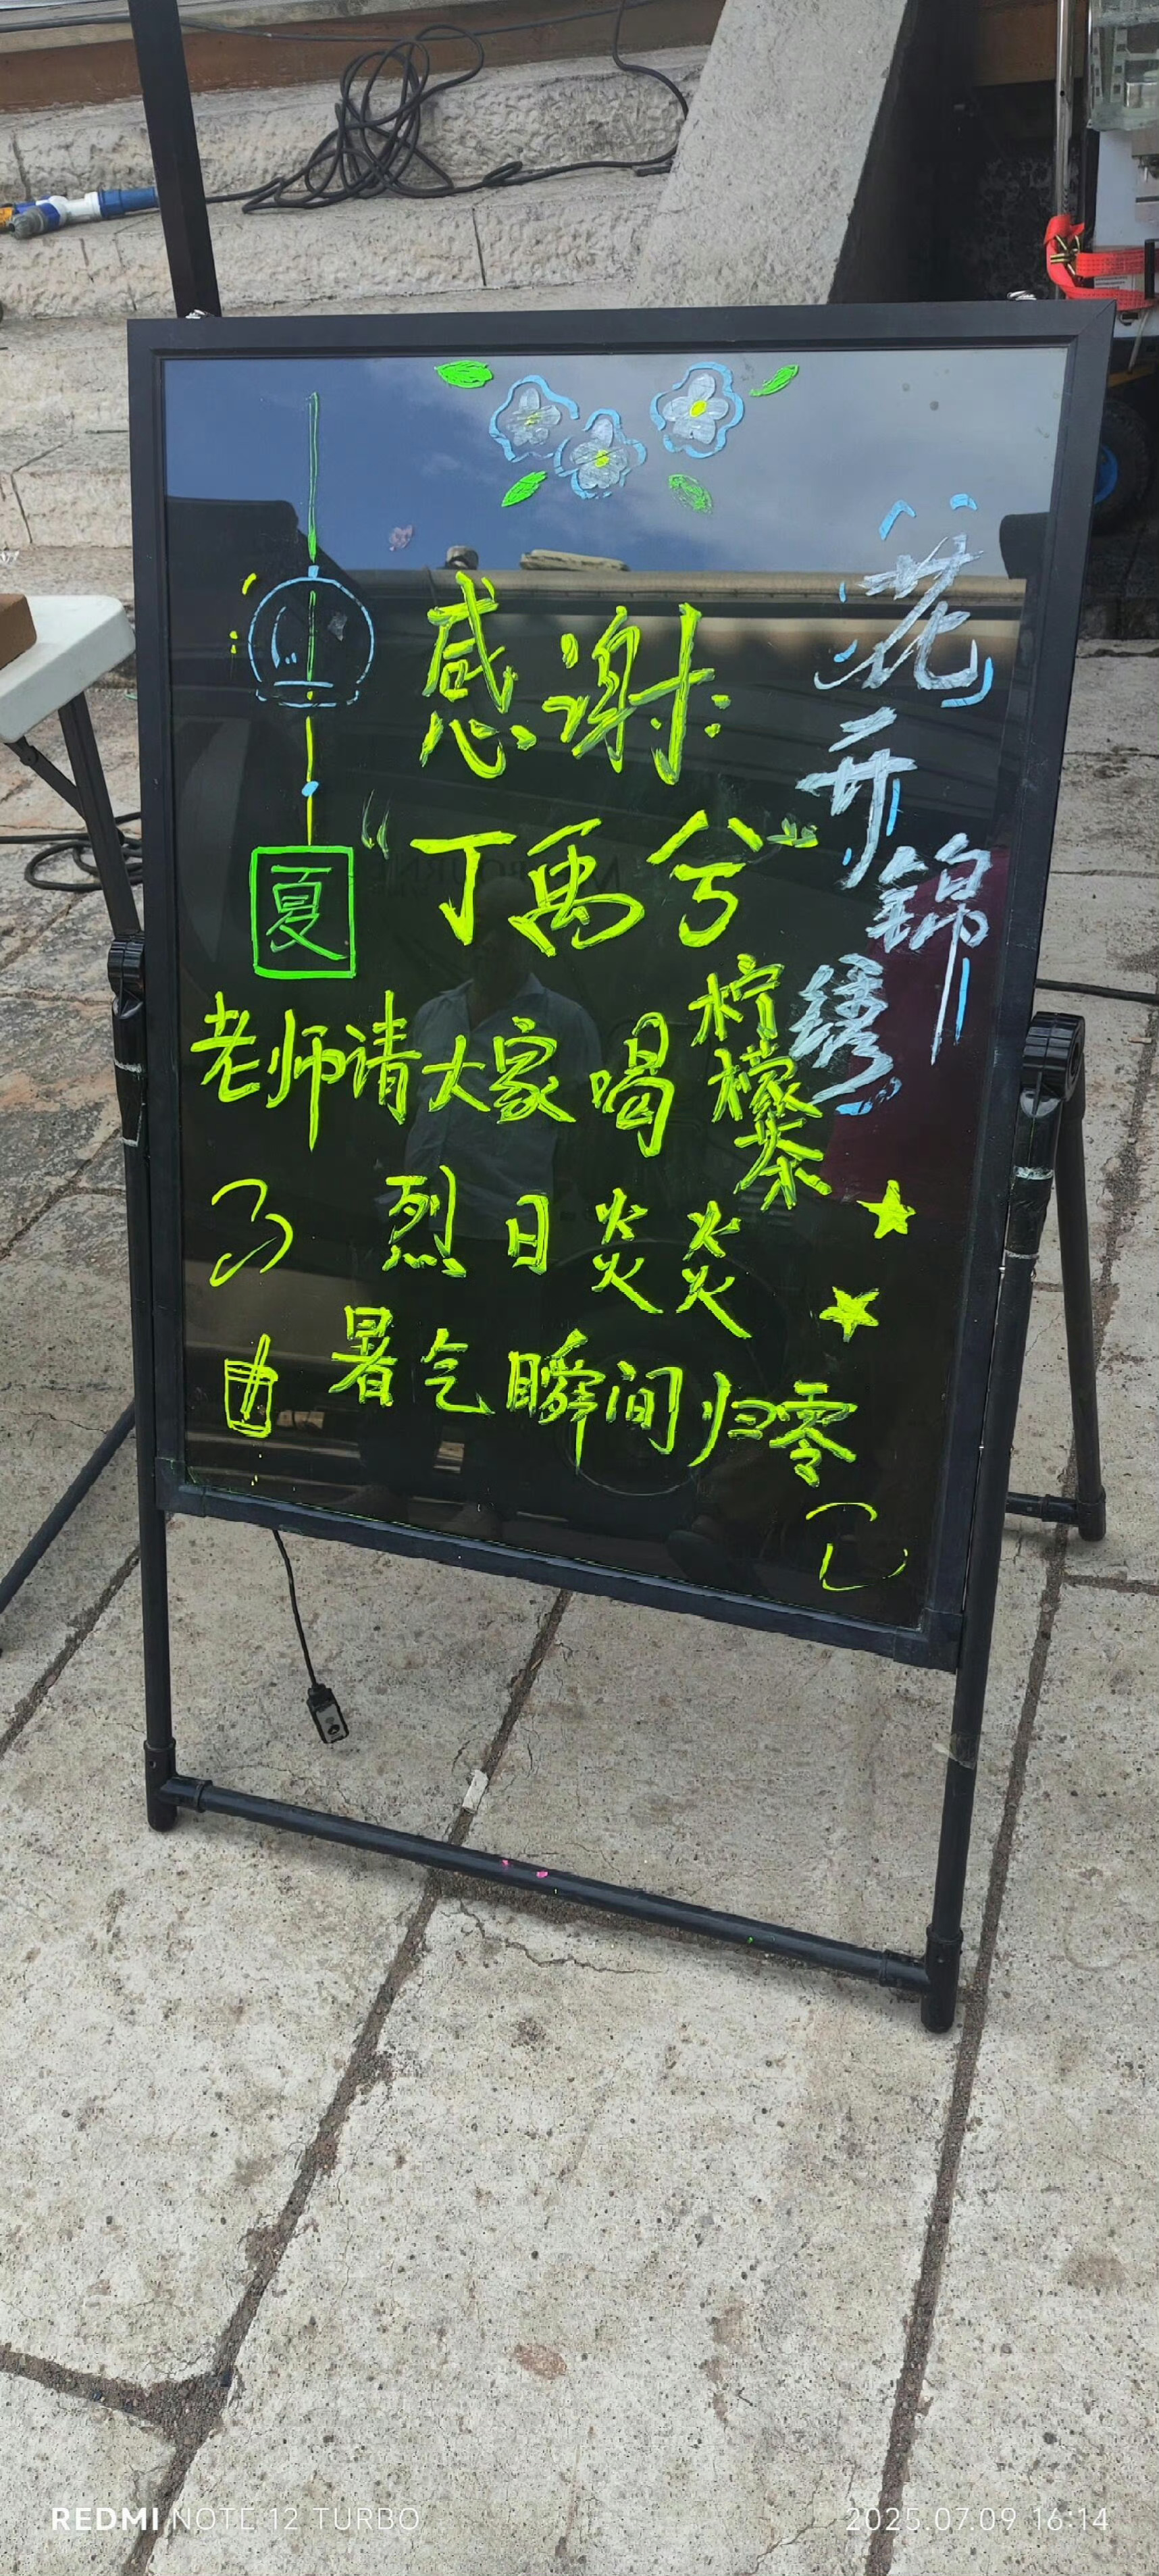 花开锦绣
感谢
“丁禹兮”
夏
老师请大家喝柠檬茶
烈日炎炎
暑气瞬间归零
REDMI NOTE 12 TURBO
2025.07.09 16:14